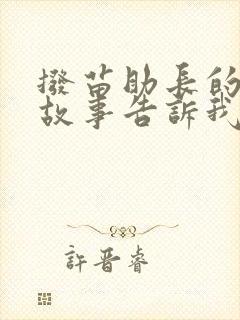 撥苗助長的
故事告訴我
許晋睿